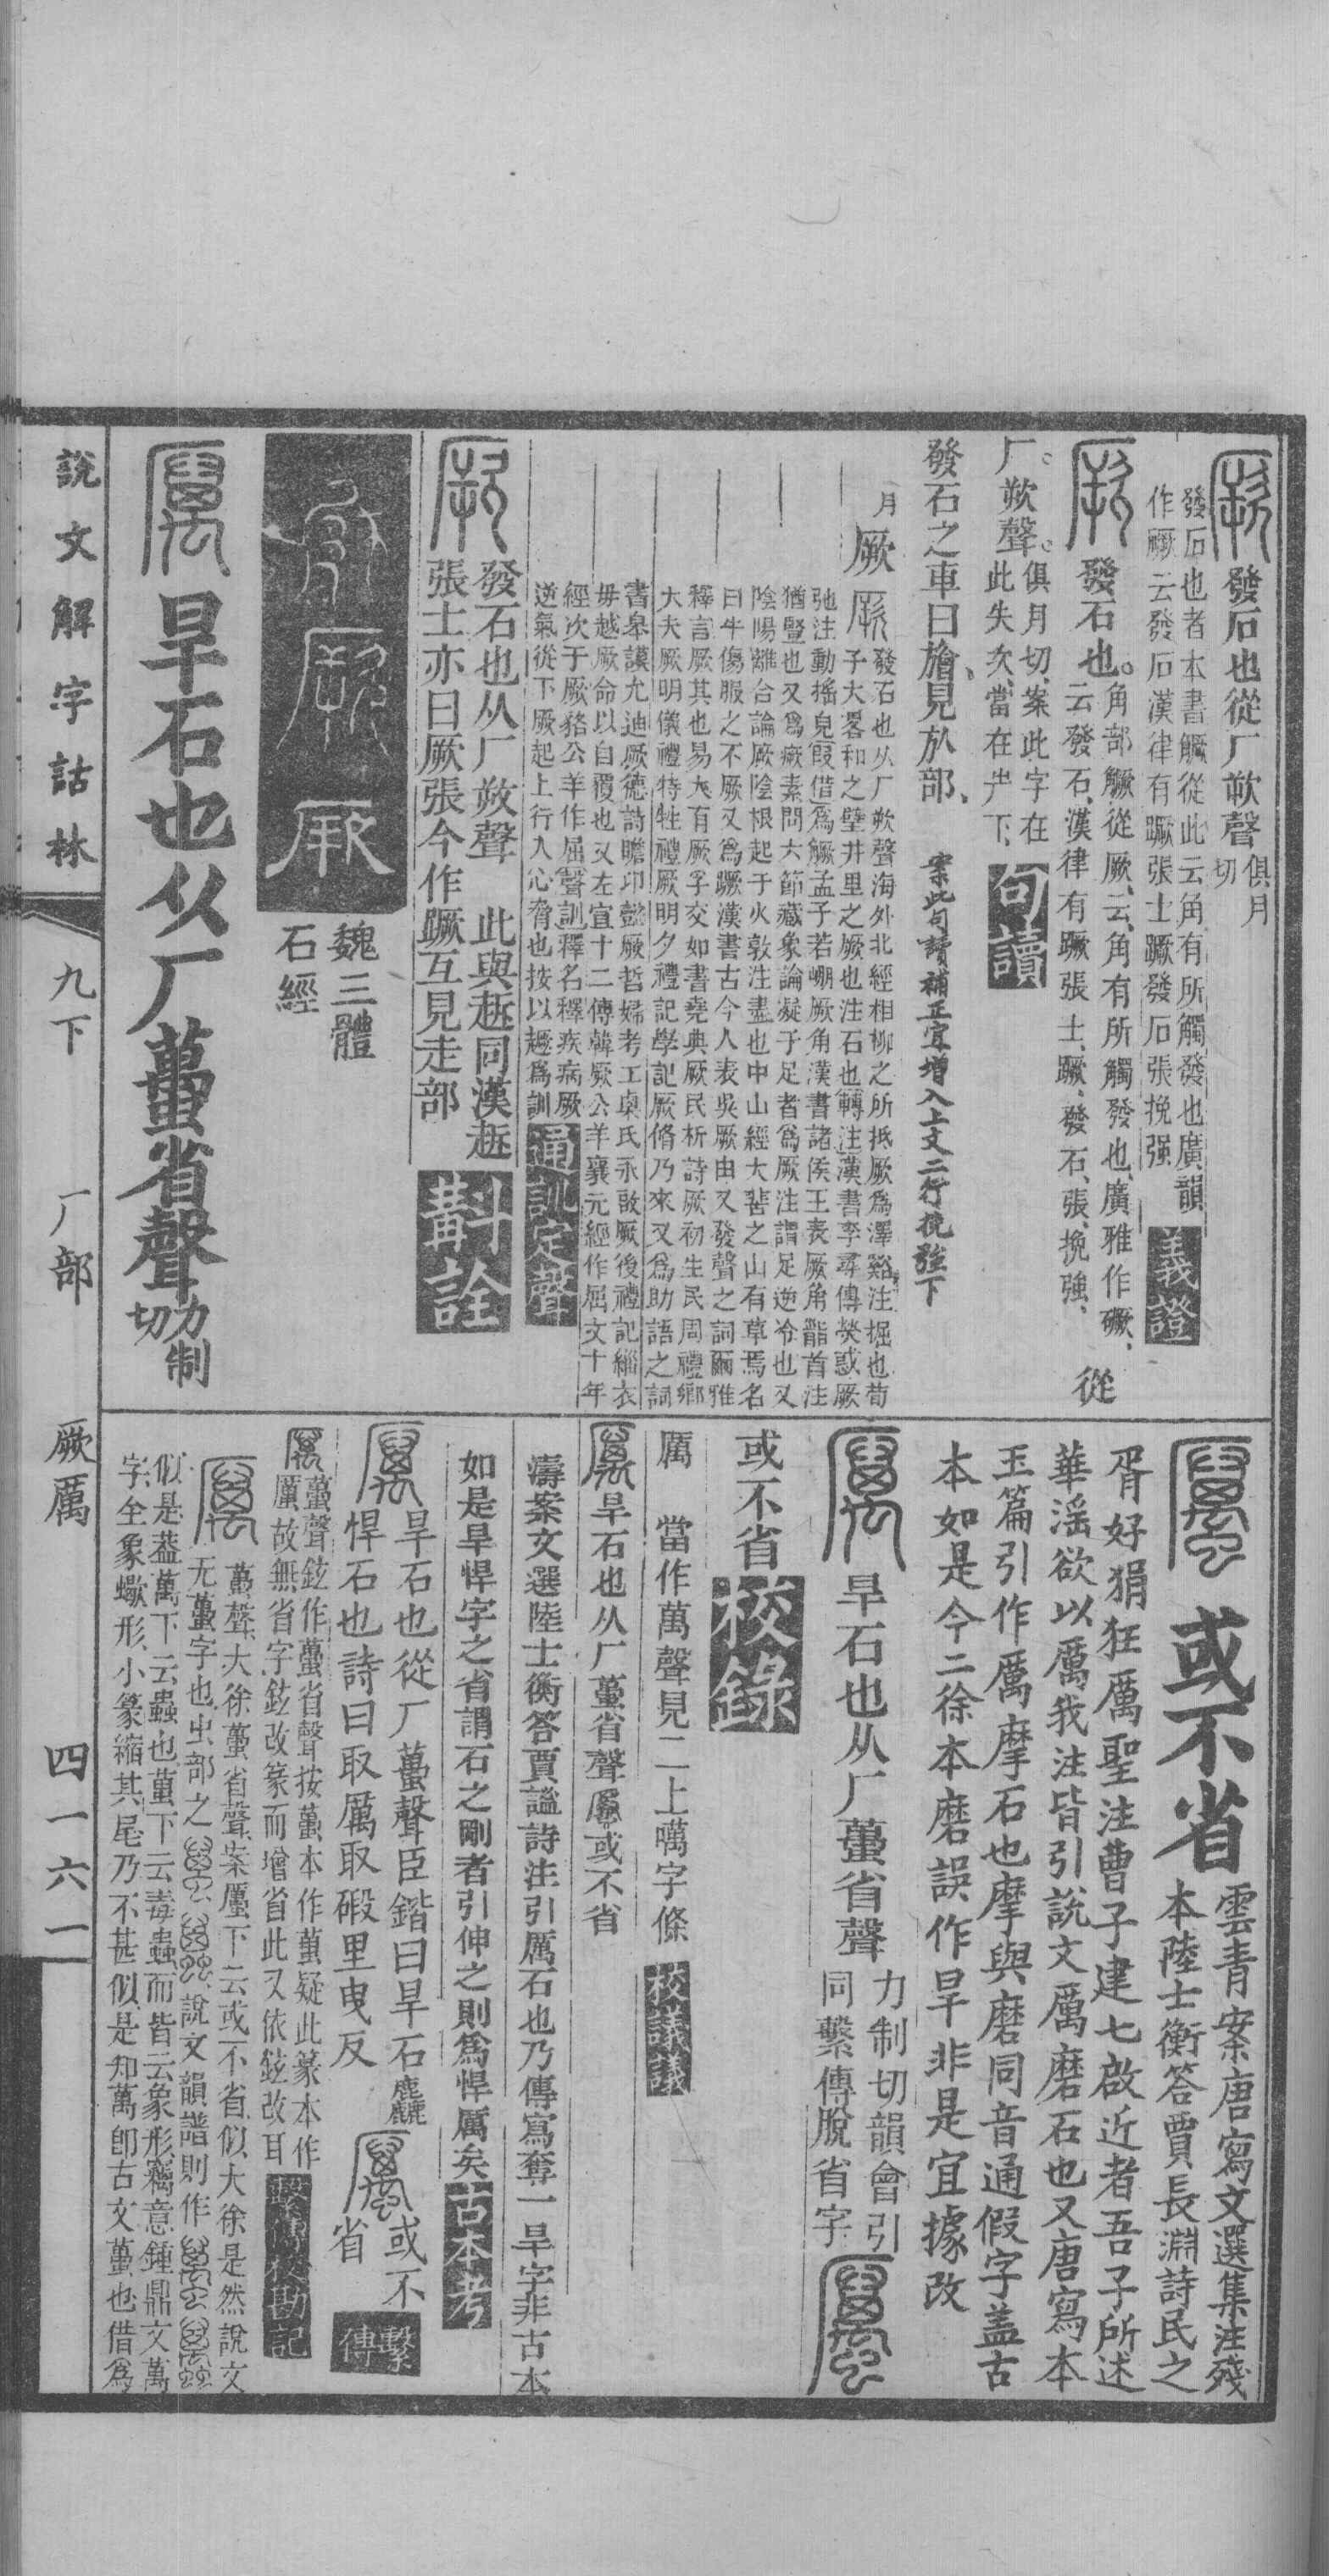 發石也從厂欮聲
俱月
切
發石也者本書觼從此云角有所觸發也廣韻
作𥕲云發石漢律有蹶張士蹶發石張挽强
義證
發石也
角部觼從厥云角有所觸發也廣雅作𥕲從
云發石漢律有蹶張士蹶發石張挽強
厂欮聲
俱月切案此字在
此失次當在屵下
句讀
發石之車曰旝見㫃部
案此句讀補正宜增入上文二行挽强下
月
厥
發石也从厂欮聲海外北經相柳之所抵厥爲澤谿注掘也荀
子大畧和之璧井里之厥也注石也轉注漢書李尋傳熒惑厥
弛注動搖皃假借爲觼孟子若崩厥角漢書諸侯王表厥角䭫首注
猶豎也又爲瘚素問六節藏象論凝于足者爲厥注謂足逆冷也又
陰陽離合論厥陰根起于大敦注盡也中山經大𩇯之山有草焉名
曰牛傷服之不厥又爲蹶漢書古今人表吳厥由又發聲之詞爾雅
釋言厥其也易大有厥孚交如書堯典厥民析詩厥初生民周禮鄉
大夫厥明儀禮特牲禮厥明夕禮記學記厥脩乃來又爲助語之詞
書皋謨允迪厥德詩瞻卬懿厥哲婦考工㮚氏永啟厥後禮記緇衣
毋越厥命以自覆也又左宣十二傳韓厥公羊襄元經作屈文十年
經次于厥貉公羊作屈聲訓釋名釋疾病厥
逆氣從下厥起上行入心脅也按以䟆爲訓
通訓定聲
發石也从厂欮聲　此與䟠同漢䟠
張士亦曰厥張今作蹶互見走部
斠詮
魏三體
石經
旱石也从厂蠆省聲
力制
切
或不省
雲青案唐寫文選集注殘
本陸士衡答賈長淵詩民之
胥好狷狂厲聖注曹子建七啟近者吾子所述
華淫欲以厲我注皆引說文厲磨石也又唐寫本
玉篇引作厲摩石也摩與磨同音通假字蓋古
本如是今二徐本磨誤作旱非是宜據改
旱石也从厂蠆省聲
力制切韻會引
同繫傳脫省字
或不省
校錄
厲　當作萬聲見一上𤡋字條
校議議
旱石也从厂蠆省聲或不省
濤案文選陸士衡答賈謐詩注引厲石也乃傳寫奪一旱字非古本
如是旱悍字之省謂石之剛者引伸之則爲悍厲矣
古本考
旱石也從厂蠆聲臣鍇曰旱石麤
悍石也詩曰取厲取碫里曳反
或不
省
繫傳
蠆聲鉉作蠆省聲按蠆本作𧍣疑此篆本作
厲故無省字鉉改篆而增省此又依鉉改耳
繫傳校勘記
蠆聲大徐蠆省聲案厲下云或不省似大徐是然說文
无蠆字也虫部之　說文韻譜則作
似是葢萬下云蟲也𧍣下云毒蟲而皆云象形竊意鍾鼎文萬
字全象蠍形小篆縮其尾乃不甚似是知萬卽古文蠆也借爲
說文解字詁林　九下　厂部　厥厲　四一六一